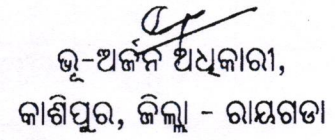 ଭୂ-ଅର୍ଜନ ଅଧିକାରୀ,
କାଶିପୁର, ଜିଲ୍ଲା - ରାୟଗଡା